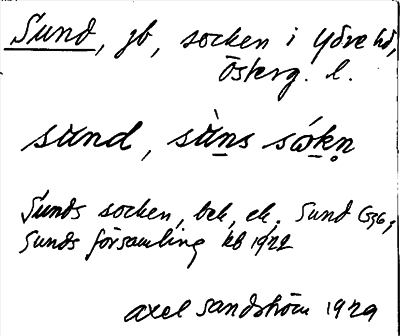 Sund, gb, socken i Ydre hd,
Österg. l.
sund, sùns sókn
Sunds socken, bek, ek. Sund G36,
Sunds församling kb 1922
Axel Sandström 1929